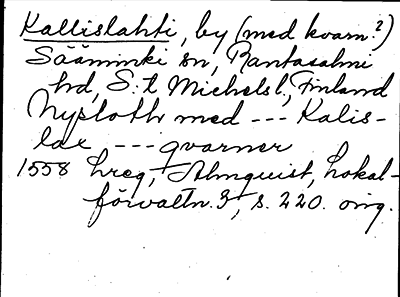 Kallislahti, by (med kvarn?)
Sääminki sn, Rantasalmi
hd, S:t Michels l., Finland
Nysloth med --- Kalis-
lax --- qvarner
1558 Lreg, Almquist, Lokal-
förvaltn. 3, s. 220. orig.